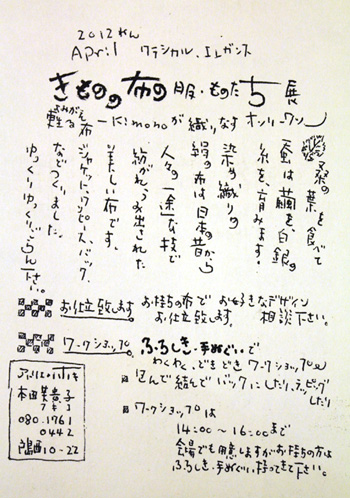 2012ねん
April クラシカル、エレガンス
きものの布の服・ものたち展
よみがえ
甦る布 ーkimonoが織りなすオンリーワンー
桑の葉を食べて
蚕は繭を、白銀の
糸を、育みます。
染め織りの
絹の布は日本の昔から
人々の一途な技で
紡がれ、うみ出された
美しい布です。
ジャケット、ワンピース、バッグ、
などつくりました。
ゆっくりゆっくりごらん下さい。
お仕立致します。 お持ちの布で お好きなデザイン
お仕立致します。 相談下さい。
ワークショップ。 ふろしき・手ぬぐいで
わくわく、どきどき ワークショップ
包んで結んでバックにしたり、ラッピング
したり
ワークショップは
14:00〜16:00まで
会場でも用意しますがお持ちの方は
ふろしき・手ぬぐい、持ってきて下さい。
アトリエ
本田
080.1761
0442
西10-22